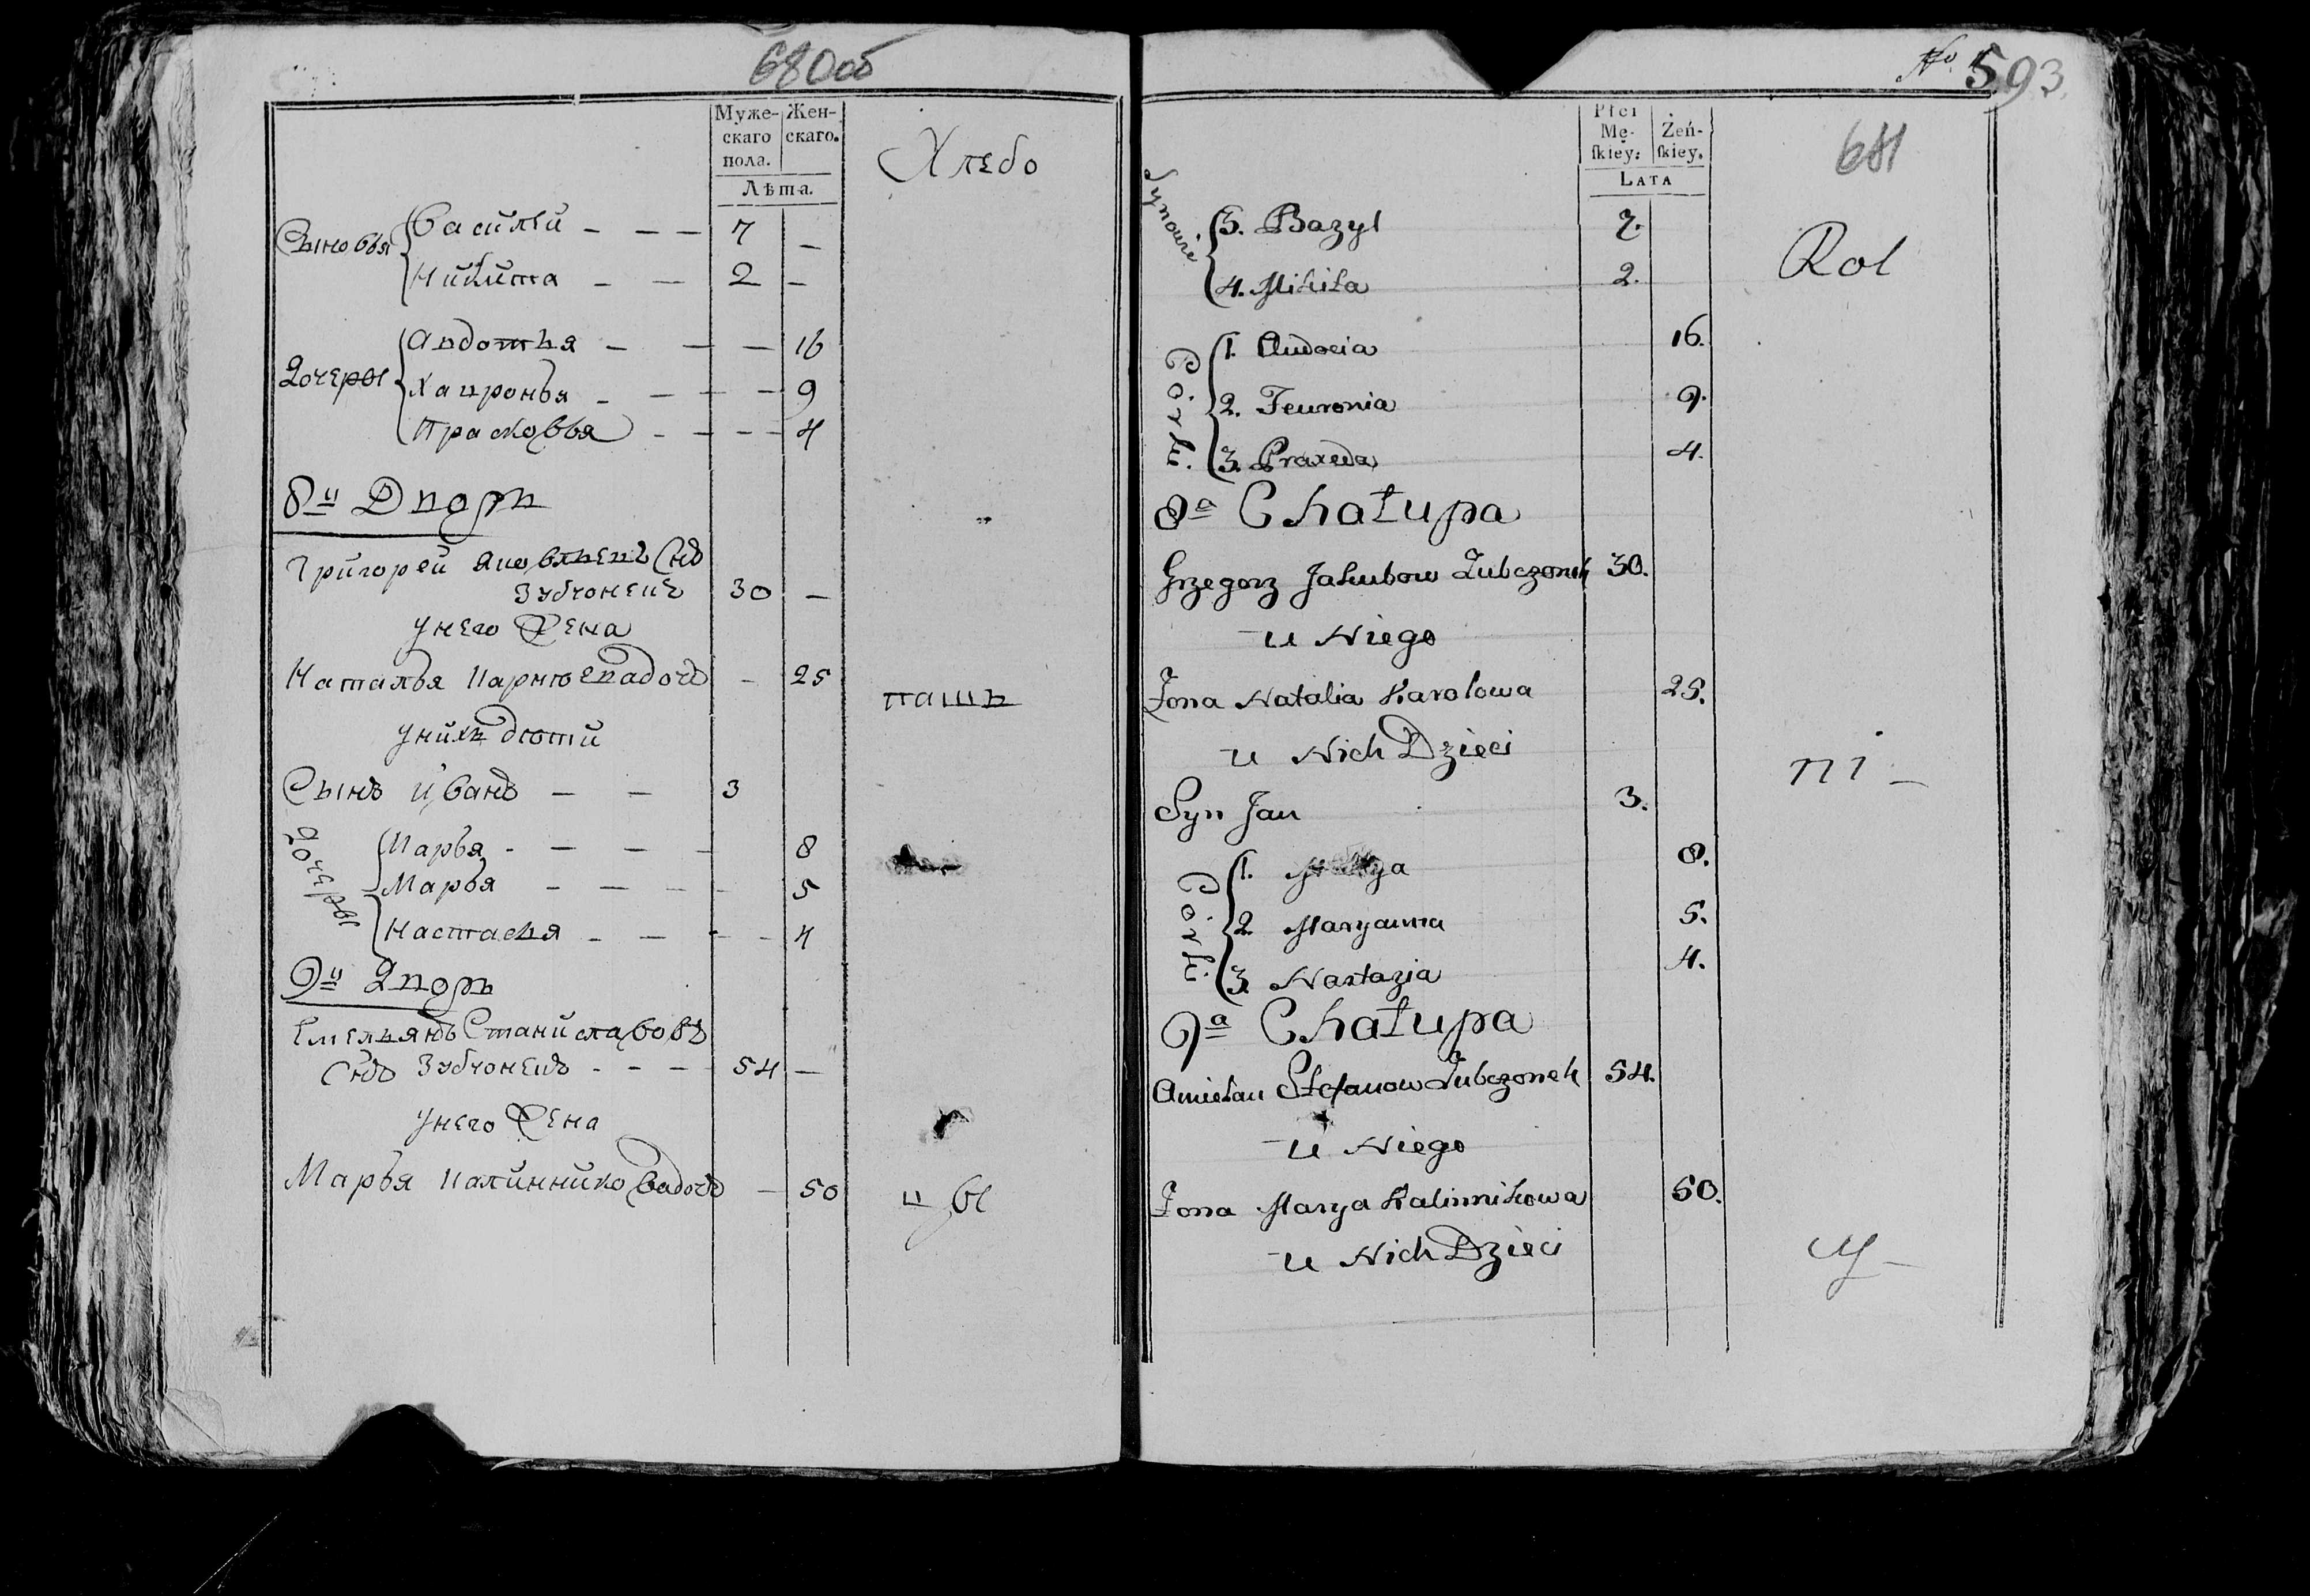 680об
Муже-
скаго
пола.
Жен-
скаго.
Лѣта.
Хлебо
Сыновья
Василiй - - - 7 -
Никита - - 2 -
Дочеры
Авдотья - - - 16
Хавронья - - - - 9
Прасковья - - - - 4
8й Дворъ
Григорей Яковлевъ Снъ
Зубчонекъ 30 -
унего Жена
Наталья - 25
пашъ
унихъ дѣти
Сынъ Иванъ - - 3
Дочеры
Марья - - - - 8
Марья - - - - 5
Настасья - - - - 4
9й Дворъ
Емельянъ Станиславовъ
Снъ Зубчонекъ - - - 54 -
унего Жена
Марья Калинниковадочъ - 50
цы
No
593
681
Płci
Mę-
skiey:
Żeń-
skiey.
LATA
Rol
Synowie
3. Bazyl 7.
4. Mikita 2.
Corki.
1. Audocia 16.
2. Feuronia 9.
3. Praxeda 4.
8a Chałupa
Grzegorz Jakubow Zubczonek 30.
u Niego
Żona Natalia Karolowa 25.
u Nich Dzieci
ni-
Syn Jan 3.
Corki.
1. Marya 8.
2. Maryanna 5.
3. Nastazia 4.
9a Chałupa
Amielan Stefanow Zubczonek 54.
u Niego
Żona Marya Kalinnikowa 50.
u Nich Dzieci
cy-